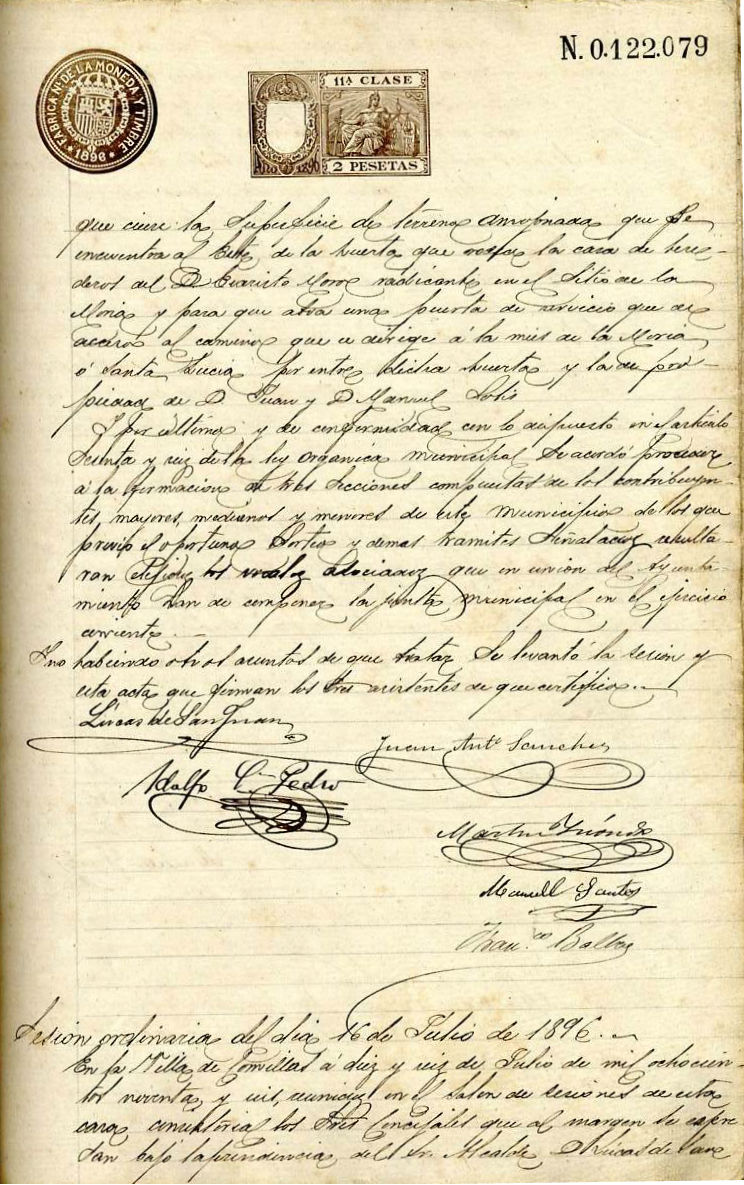 N. 0.122.079
FABRICA Nal DE LA MONEDA Y TIMBRE
* 1896 *
11ª CLASE
Año 1896
2 PESETAS
que cierre la superficie de terreno amojonada que se
encuentra al Este de la huerta que rodea la casa de here-
deros del D. Evaristo radicante en el sitio de la
Moria y para que abra una puerta de servicio que de
acceso al camino que se dirige á la mies de la Moria
ó Santa Lucia por entre dicha huerta y la de pro-
piedad de D. Juan y D. Manuel Solis
Y por último y de conformidad con lo dispuesto en el artículo
sesenta y seis de la ley orgánica municipal se acordó proceder
á la formacion de tres secciones compuestas de los contribuyen-
tes, mayores, medianos y menores de este municipio de los que
previo el oportuno sorteo y demas tramites señalados resulta-
ran elejidos los vocales asociados que en union del Ayunta-
miento han de componer la junta municipal en el ejercicio
corriente.
Y no habiendo otros asuntos de que tratar se levantó la sesion y
esta acta que firman los Sres asistentes de que certifico.
Lucas de San Juan
Juan Anto Sanchez
Adolfo Pedro
Martin
Manuel Santos
Franco
Sesión ordinaria del dia 16 de Julio de 1896.
En la Villa de Comillas á diez y seis de Julio de mil ochocien-
tos noventa y seis, reunidos en el salon de sesiones de esta
casa consistorial los Sres Concejales que al margen se espre
san bajo la presidencia del Sr. Alcalde D. Lucas de San